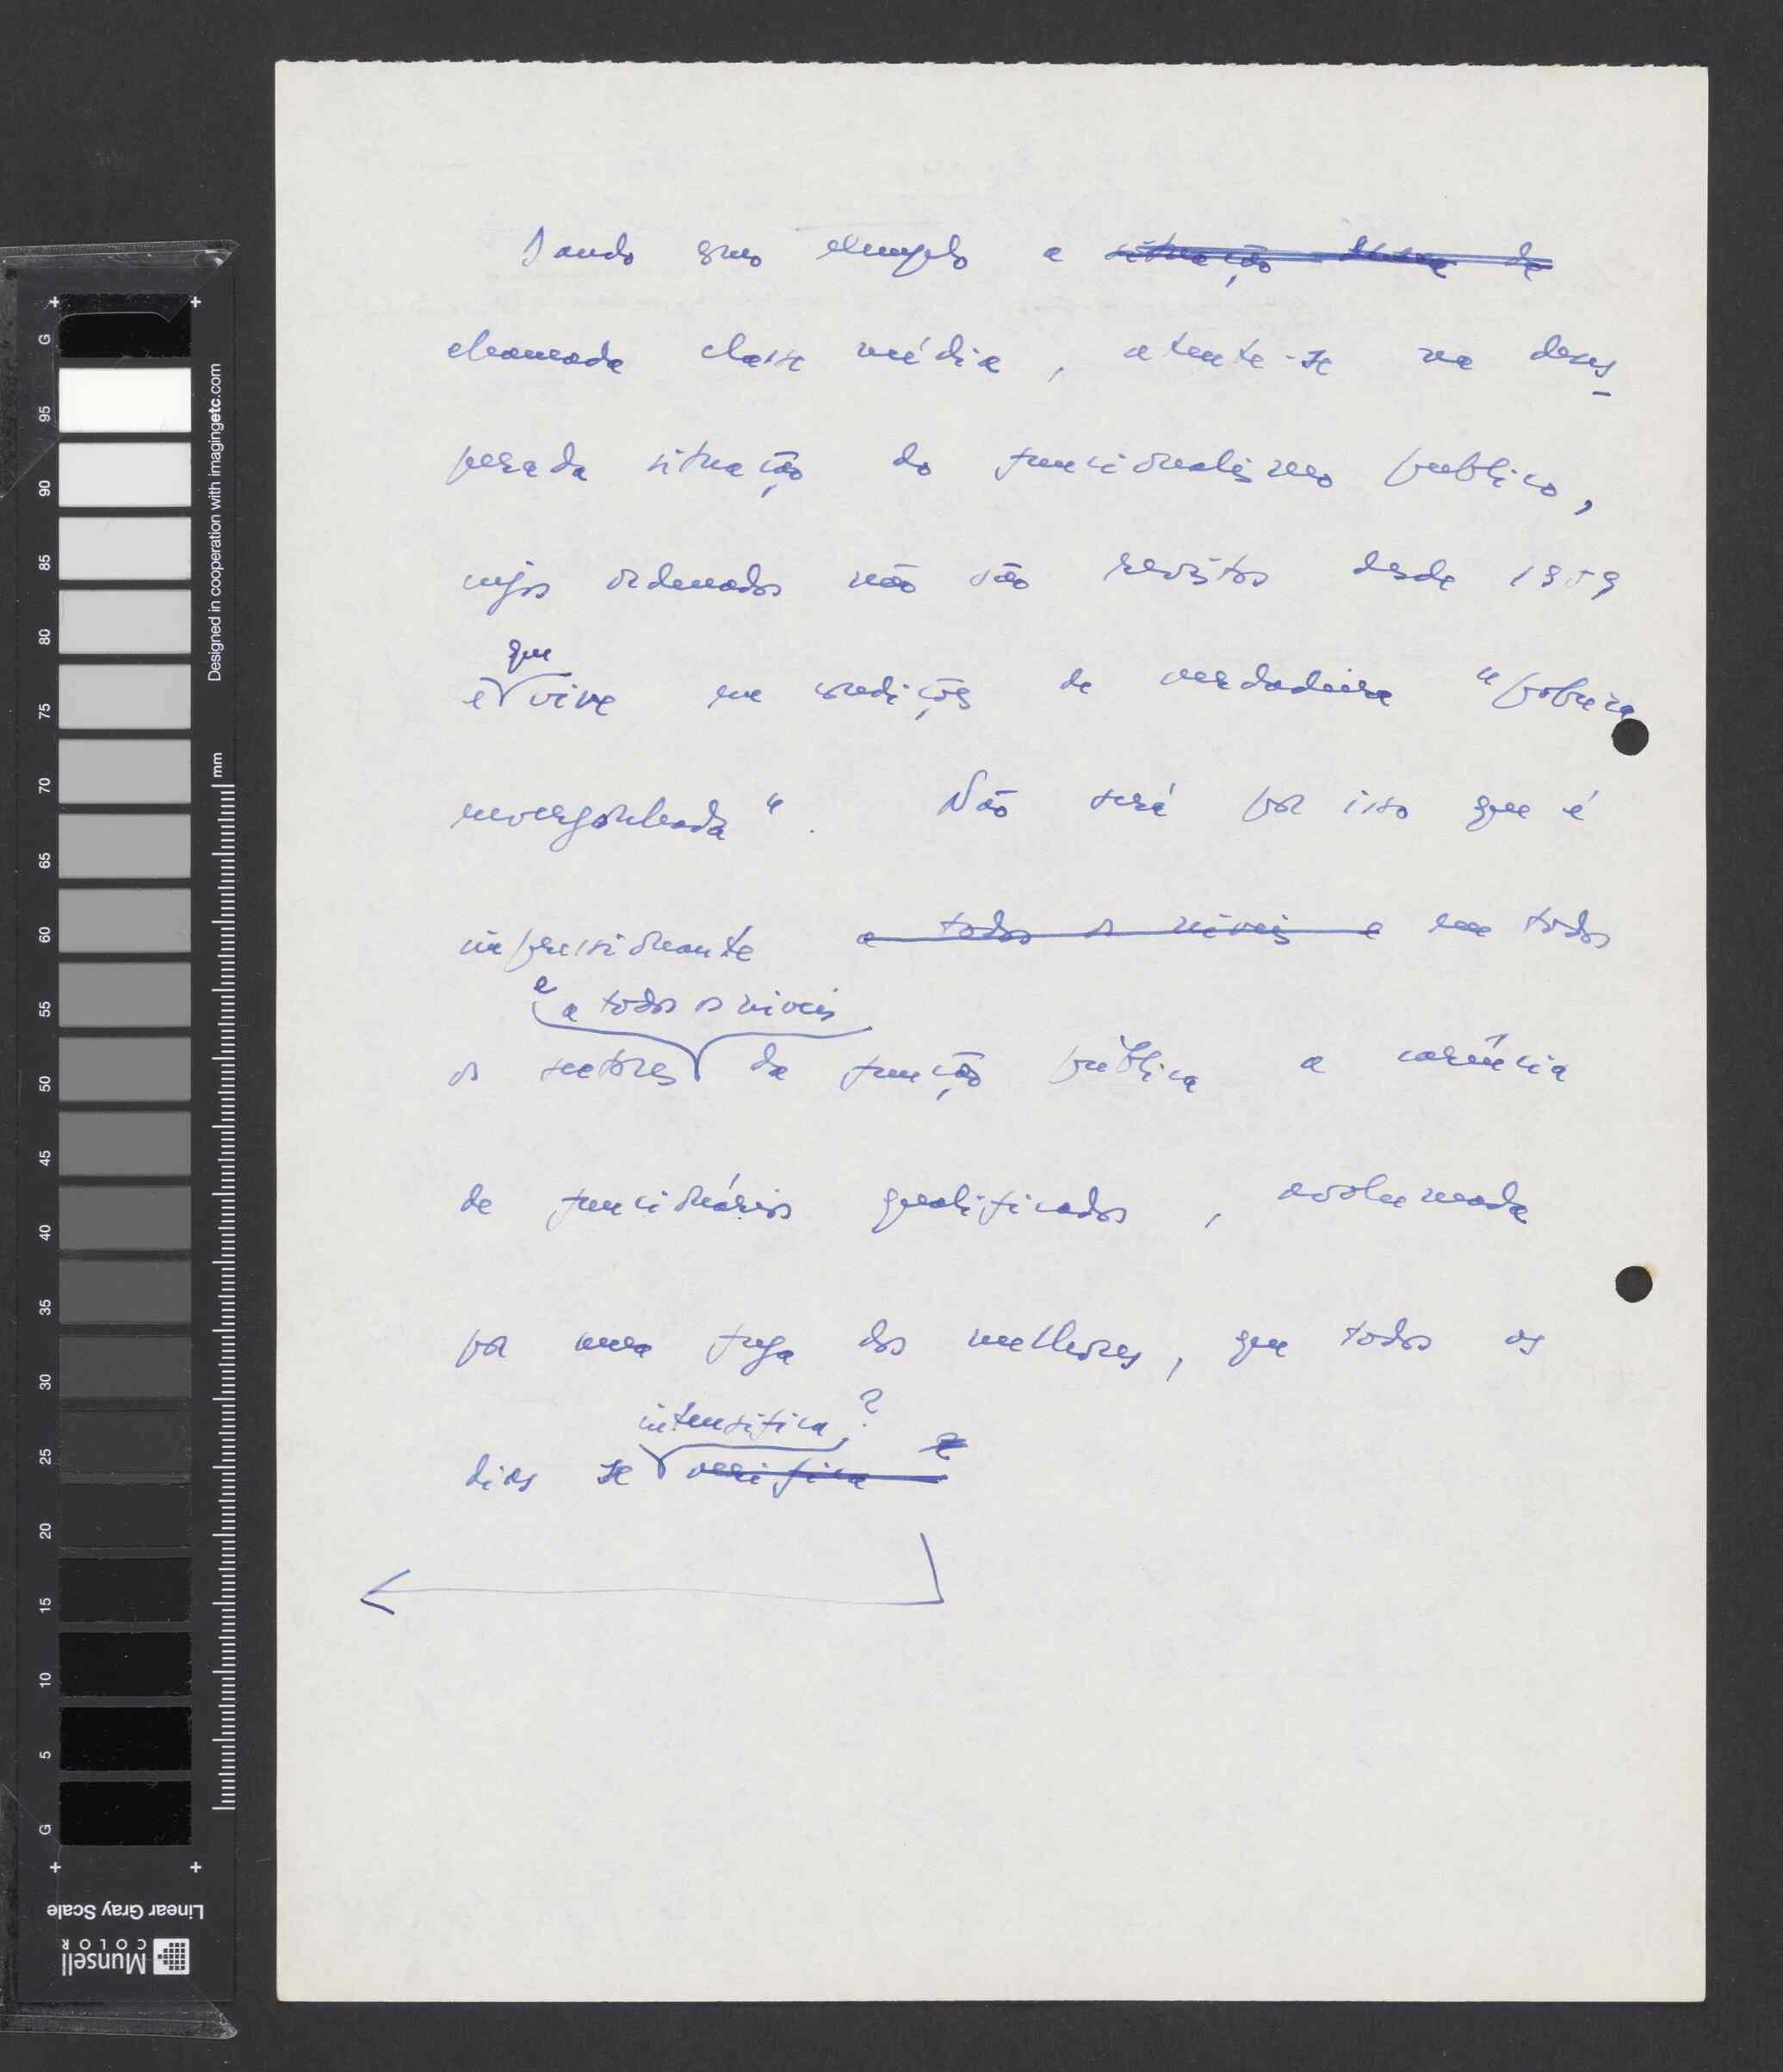 Dando como exemplo a situação da
chamada classe média, atente-se na deses-
perada situação do funcionalismo publico,
cujos ordenados não são revistos desde 1959
que
e vive em condições de verdadeira "pobreza
envergonhada". Não será por isso que é
impressionante a todos os niveis e em todos
e a todos os niveis
os sectores da função pública a carência
de funcionários qualificados, avolumada
por uma fuga dos melhores, que todos os
intensifica?
dias se verifica
Designed in cooperation with imagingetc.com
mm
G
95
90
85
80
75
70
65
60
55
50
45
40
35
30
25
20
15
10
5
G
Linear Gray Scale
Munsell
COLOR